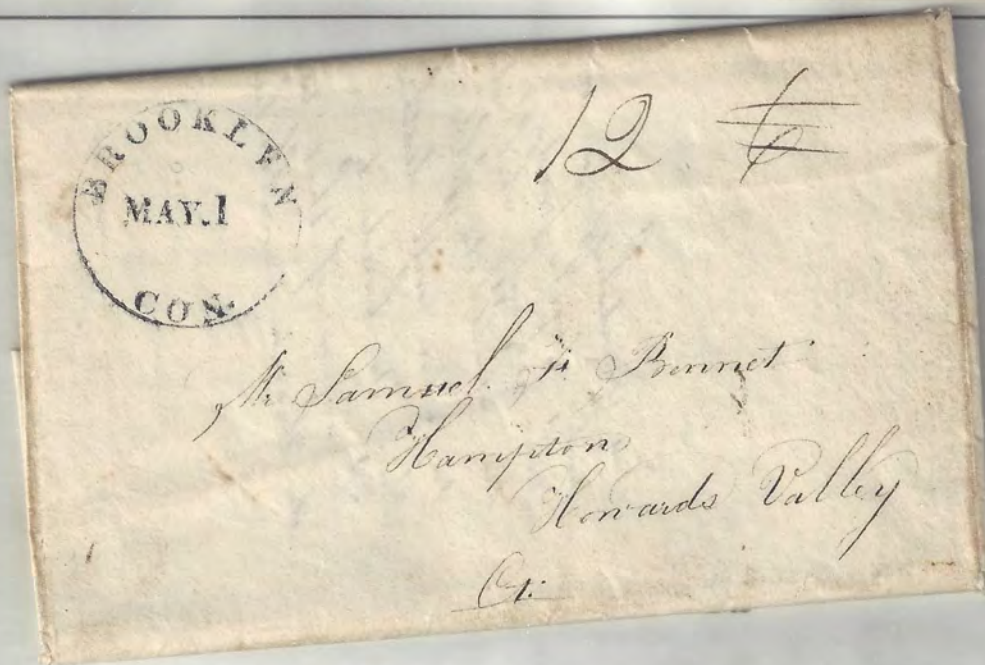 BROOKLYN
MAY.1
CON.
12 6
Mr Samuel Bennet
Hampton
Howards Valley
Ct.